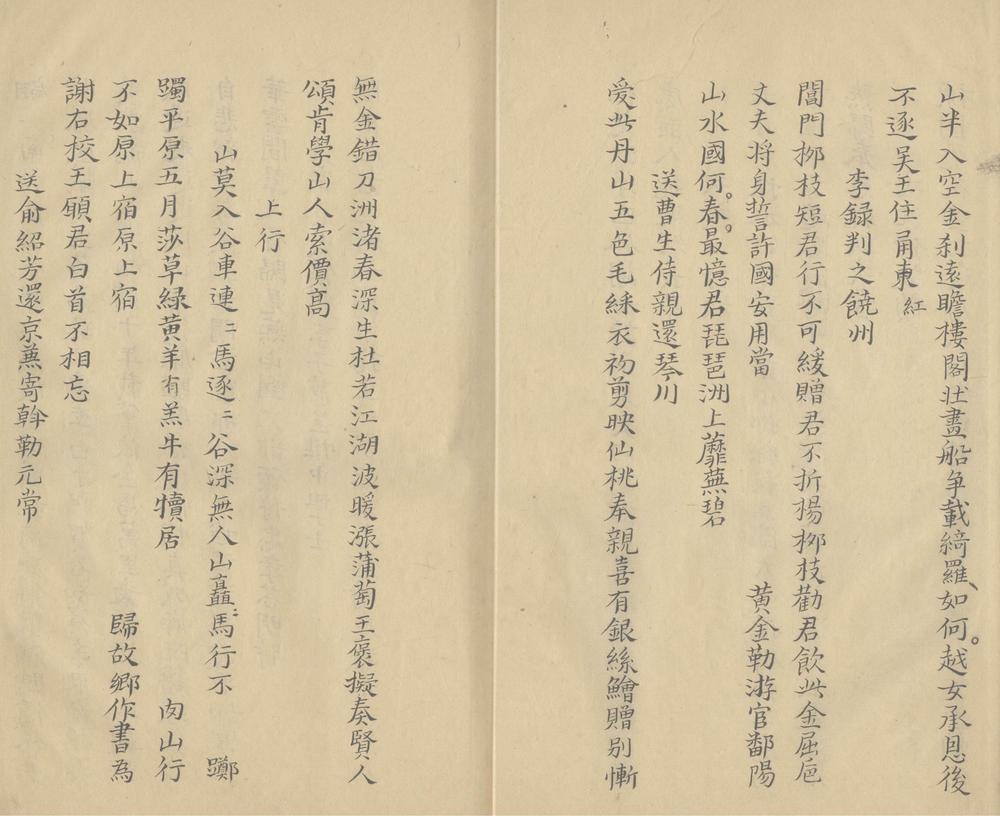 山半入空金刹遠瞻樓閣壮畫船争載綺羅、如何。越女承恩後
不逐吴王住甬東 紅
李録判之饒州
閶門栁枝短君行不可緩贈君不折楊栁枝勸君飲此金屈巵
丈夫將身誓許國安用當 黄金勒游官鄱陽
山水國何。春。最憶君琵琶洲上蘼蕪碧
送曹生侍親還琴川
爱此丹山五色毛綵衣初剪映仙桃奉親喜有銀絲鱠贈别慚
無金錯刀洲渚春深生杜若江湖波暖漲蒲萄王褒擬奏賢人
頌肯學山人索價高
上行
山莫入谷車連二馬逐二谷深無人山矗二馬行不 躑
躅平原五月莎草緑黄羊有羔牛有犢居 肉山行
不如原上宿原上宿 歸故鄉作書為
謝右校王願君白首不相忘
送俞紹芳還京蕪寄斡勒元常